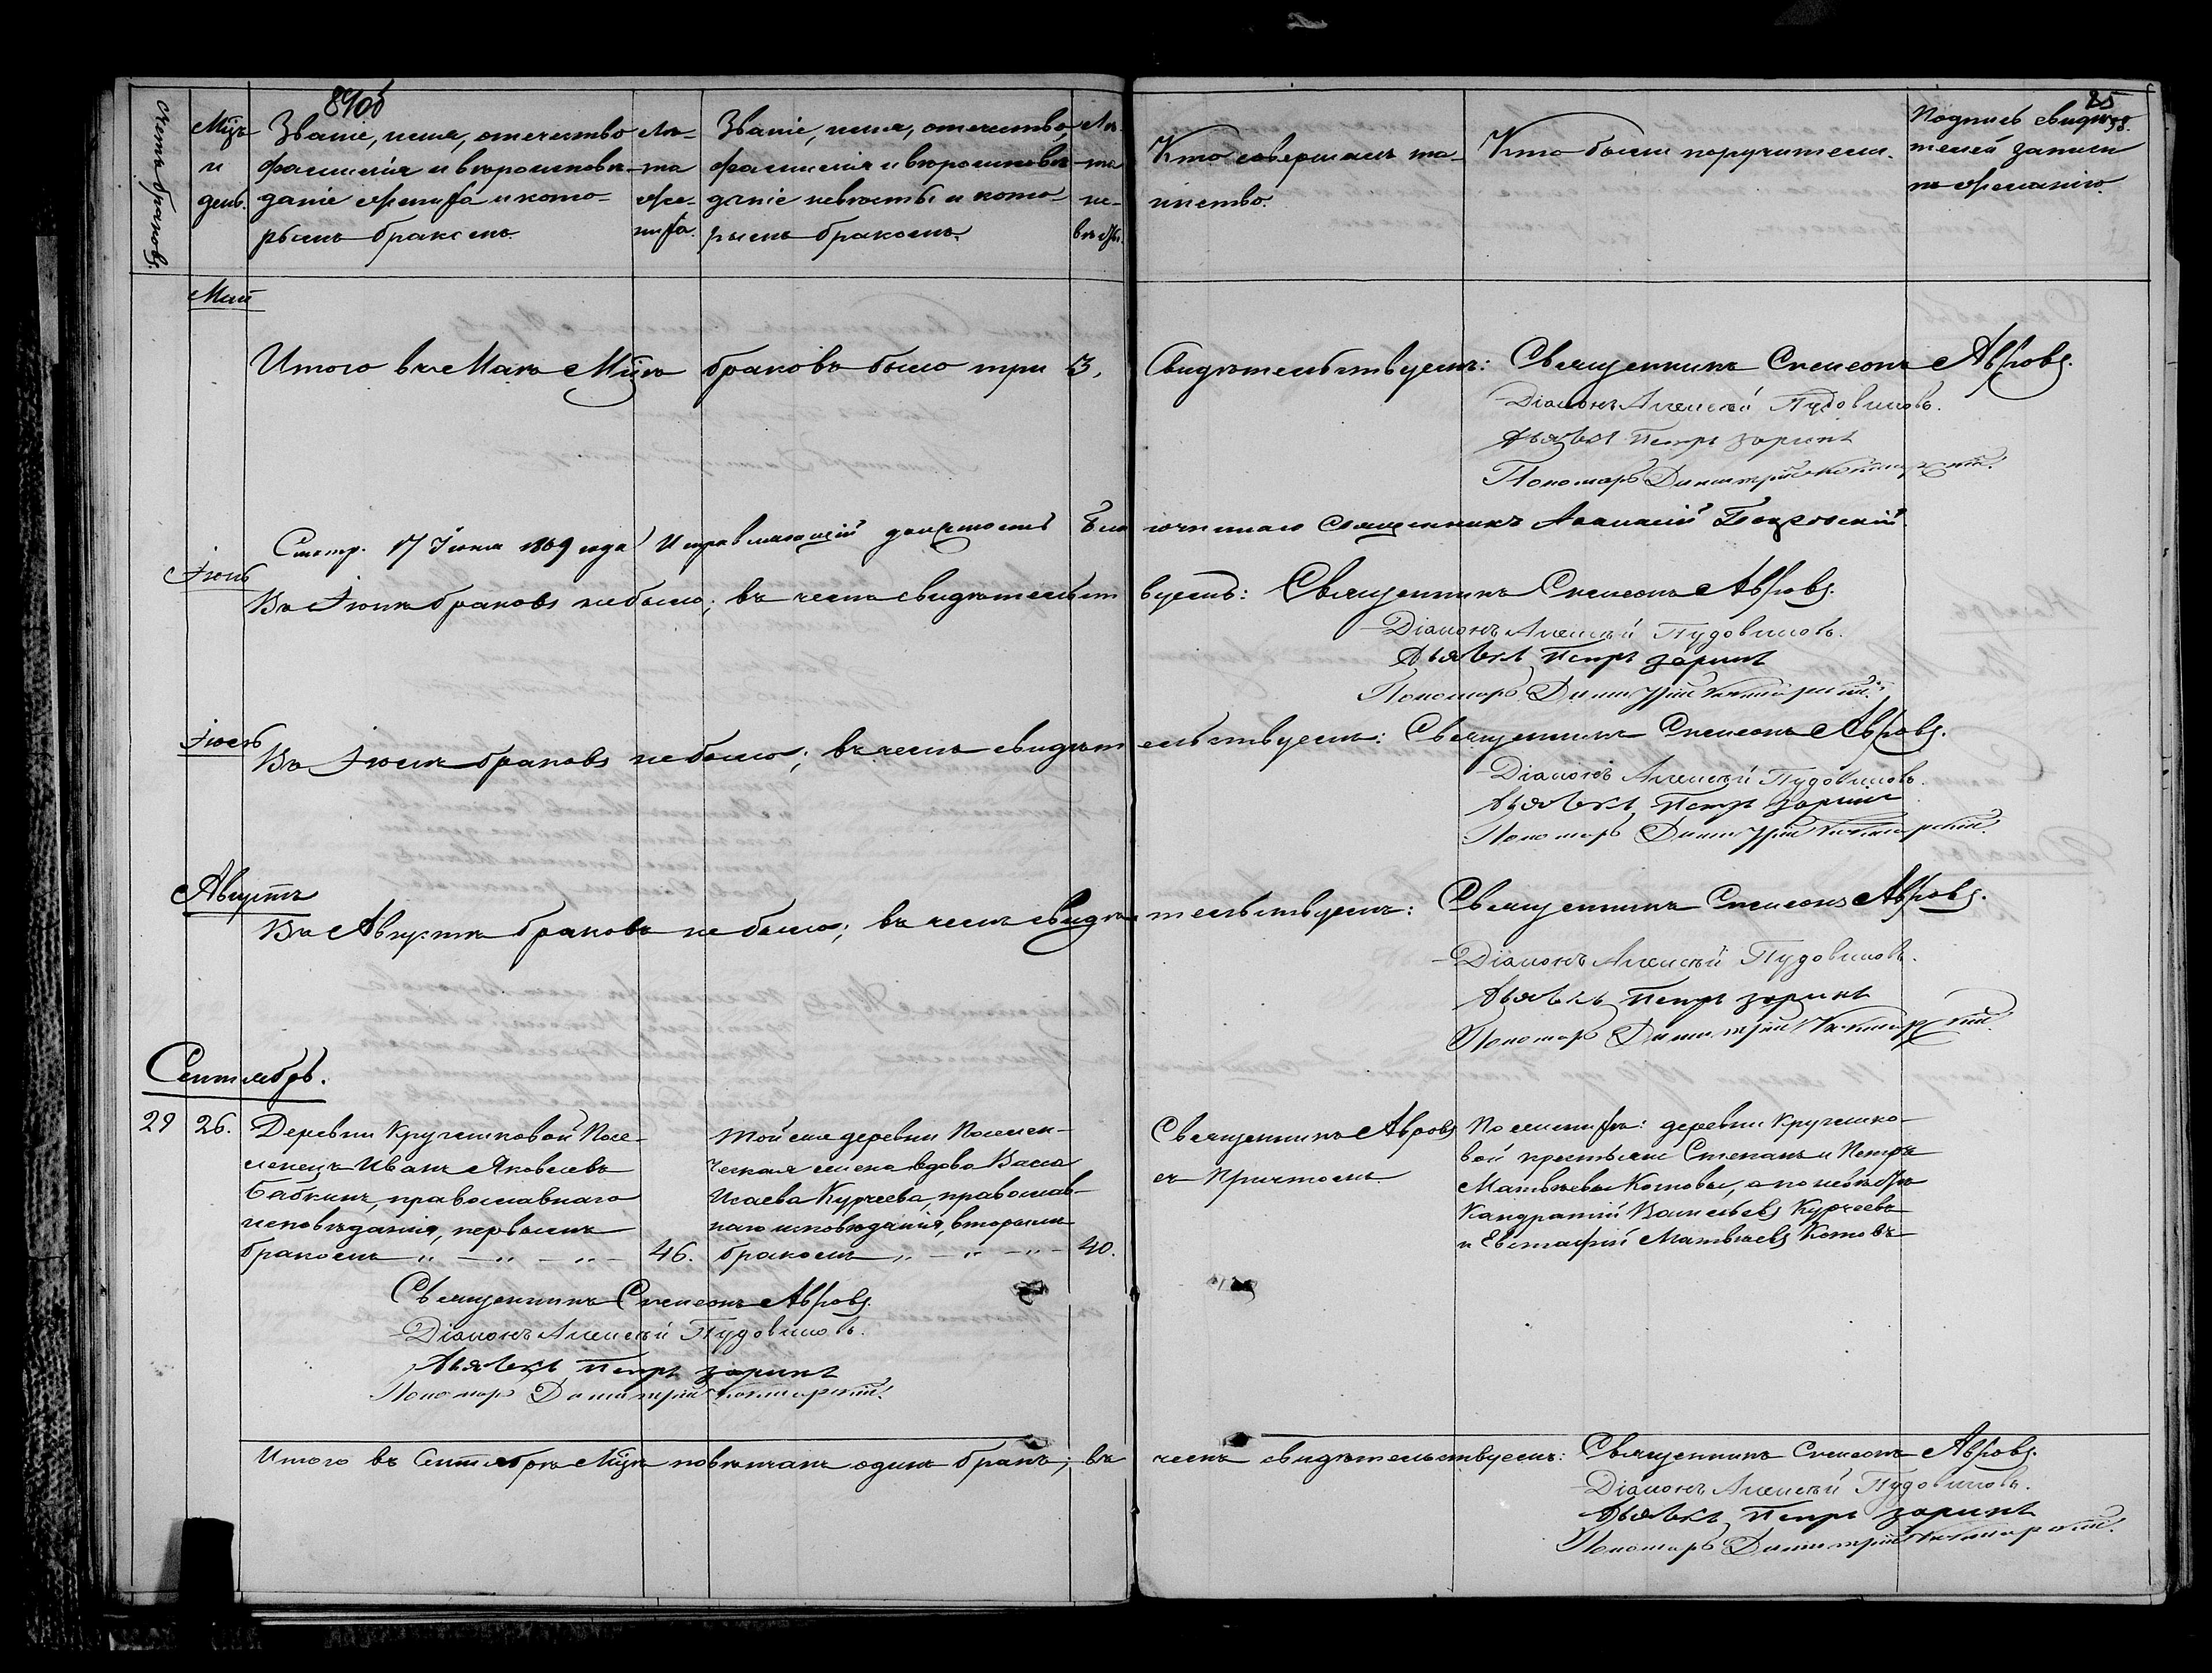 85
Счетъ браковъ.
Мцъ
и
день.
Званіе, имя, отчество
фамилія и вѣроисповѣ-
даніе жениха и кото-
рымъ бракомъ.
Лѣ-
та
же-
ниха.
Званіе, имя, отчество,
фамилія и вѣроисповѣ-
даніе невѣсты и кото-
рымъ бракомъ.
Лѣ-
та
не-
вѣсты.
Кто совершалъ та-
инство.
Кто были поручители.
Подпись свидѣ-
телей записи
по желанію.
Май
Итого въ Маѣ Мцѣ браковъ было три 3, Свидѣтельствуемъ: Священникъ Симеонъ Авровъ.
Діаконъ Алексѣй Пудовиковъ.
Дьячекъ Петръ Заринъ
Пономарь Димитрій
Смотр. 17 Іюня 1869 года Исправляющій должность Благочиннаго Священникъ Аѳанасій
Іюнь
Въ Іюнѣ браковъ небыло; въ чемъ свидѣтельствуемъ: Священникъ Симеонъ Авровъ.
Діаконъ Алексѣй Пудовиковъ.
Дьячекъ Петръ Заринъ
Пономарь Димитрій
Іюль
Въ Іюлѣ браковъ небыло; въ чемъ свидѣтельствуемъ: Священникъ Симеонъ Авровъ.
Діаконъ Алексѣй Пудовиковъ.
Дьячекъ Петръ Заринъ
Пономарь Димитрій
Августъ
Въ Августѣ браковъ небыло; въ чемъ свидѣтельствуемъ: Священникъ Симеонъ Авровъ.
Діаконъ Алексѣй Пудовиковъ.
Дьячекъ Петръ Заринъ
Пономарь Димитрій
Сентябрь.
29
26.
Деревни Кругликовой Посе-
ленецъ Иванъ Яковлевъ
Бабкинъ, православнаго
исповѣданія, первымъ
бракомъ „ — „ — „ — 46.
Той же деревни Поселен-
ческая жена вдова Васса
Исаева Курчеева, православ-
наго исповѣданія, вторымъ
бракомъ „ — „ — „ — 40.
Священникъ Авровъ
съ Причтомъ.
По женихѣ: деревни Круглико-
вой крестьяне Степанъ и Петръ
Матвѣевы Котовы, а по невѣстѣ
Кандратій Васильевъ Курчеевъ
и Евстафій Матвѣевъ Котовъ
Священникъ Симеонъ Авровъ.
Діаконъ Алексѣй Пудовиковъ.
Дьячекъ Петръ Заринъ
Пономарь Димитрій
Итого въ Сентябрѣ Мцѣ повѣнчанъ одинъ бракъ; въ чемъ свидѣтельствуемъ: Священникъ Симеонъ Авровъ.
Діаконъ Алексѣй Пудовиковъ.
Дьячекъ Петръ Заринъ
Пономарь Димитрій